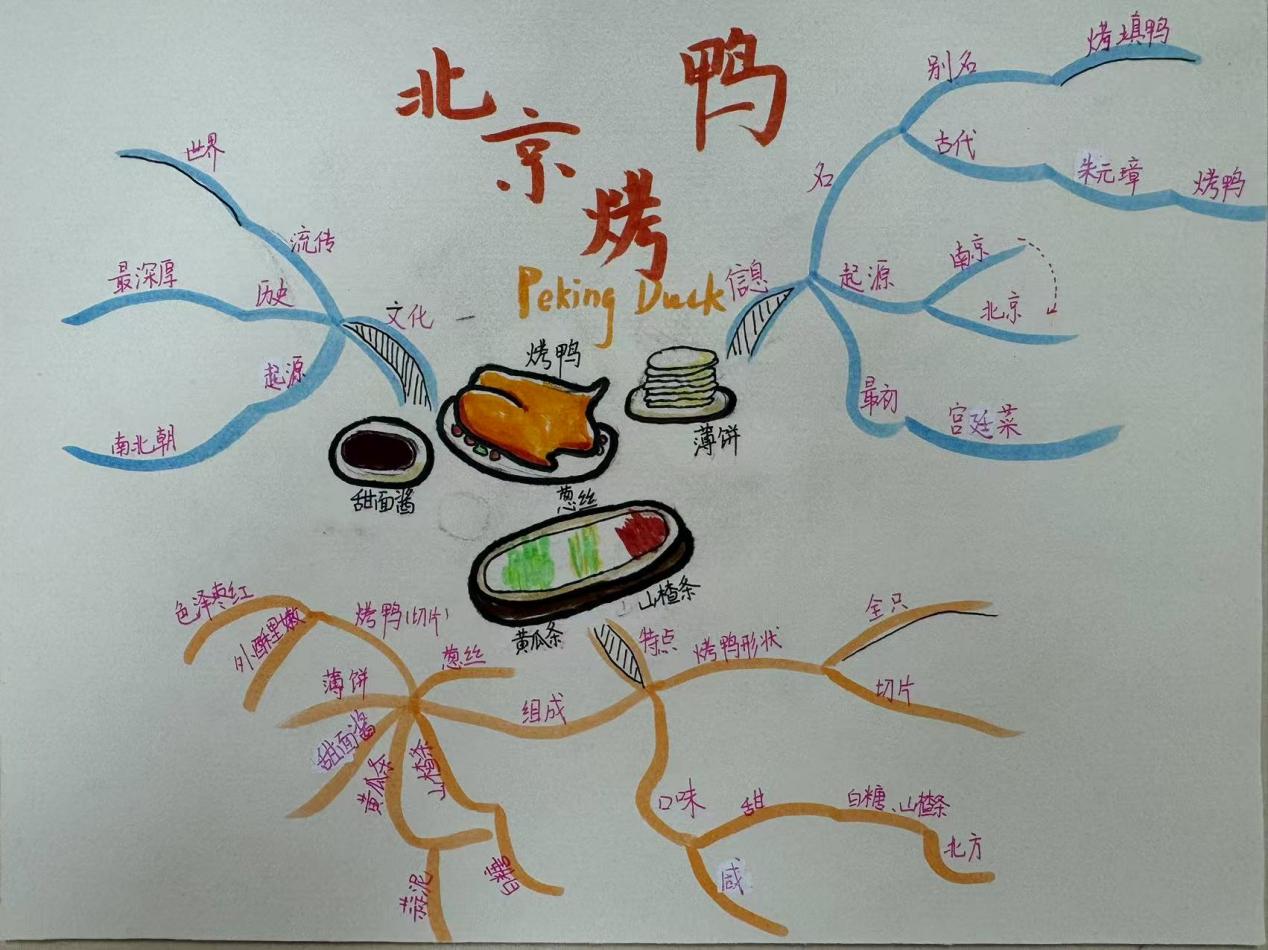 北京烤鸭
Peking Duck
烤鸭
薄饼
甜面酱
葱丝
山楂条
黄瓜条
信息
名
别名
烤填鸭
古代
朱元璋
烤鸭
起源
南京
北京
最初
宫廷菜
文化
流传
世界
历史
最深厚
起源
南北朝
特点
烤鸭形状
全只
切片
口味
甜
白糖、山楂条
北方
咸
组成
葱丝
烤鸭(切片)
色泽枣红
外酥里嫩
薄饼
甜面酱
黄瓜条
蒜泥
山楂条
白糖